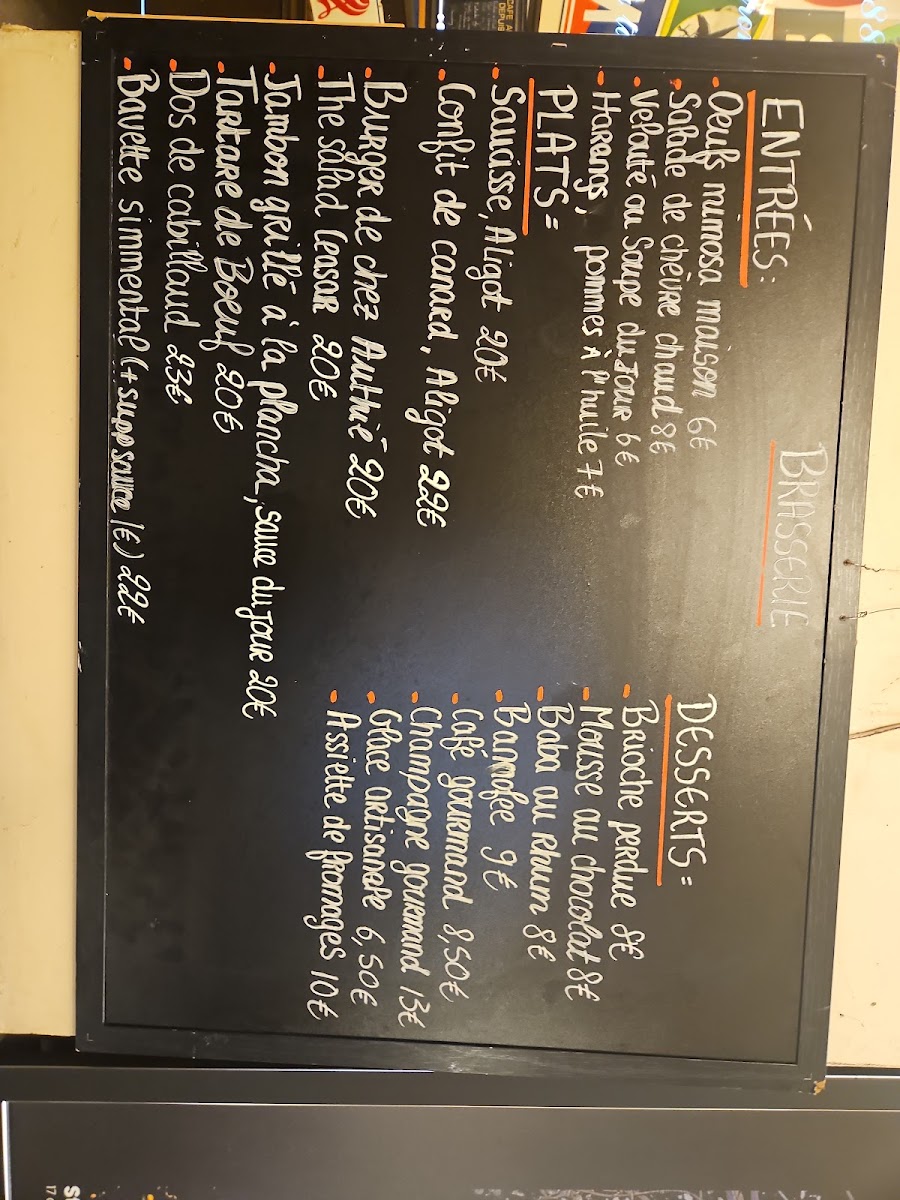 BRASSERIE
ENTRÉES:
• Oeufs mimosa maison 6€
• Salade de chèvre chaud 8€
• Velouté ou Soupe du JOUR 6€
• Harengs, pommes à l'huile 7€
PLATS=
• Saucisse, Aligot 20€
• Confit de canard, Aligot 22€
• Burger de chez Authié 20€
• The salad Ceasar 20€
• Jambon grillé à la plancha, sauce du JOUR 20€
• Tartare de Boeuf 20€
• Dos de cabillaud 23€
• Bavette simmental (+ supp sauce 1€) 22€
DESSERTS=
• Brioche perdue 8€
• Mousse au chocolat 8€
• Baba au rhum 8€
• Bannofee 9€
• Café gourmand 8,50€
• Champagne gourmand 13€
• Glace artisanale 6,50€
• Assiette de fromages 10€